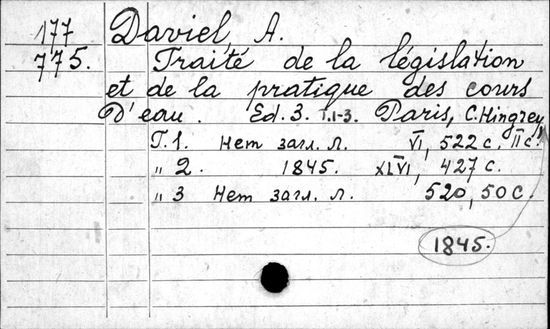 177 Daviel A.
775. Traité de la législation
et de la pratique des cours
D'eau. Ed. 3. T.1-3. Paris, C. Hingrey,
T. 1. Нет загл. л. VI, 522 с. II с.
" 2. 1845. XLVI, 427 с.
" 3 Нет загл. л. 520, 50 с.
1845.